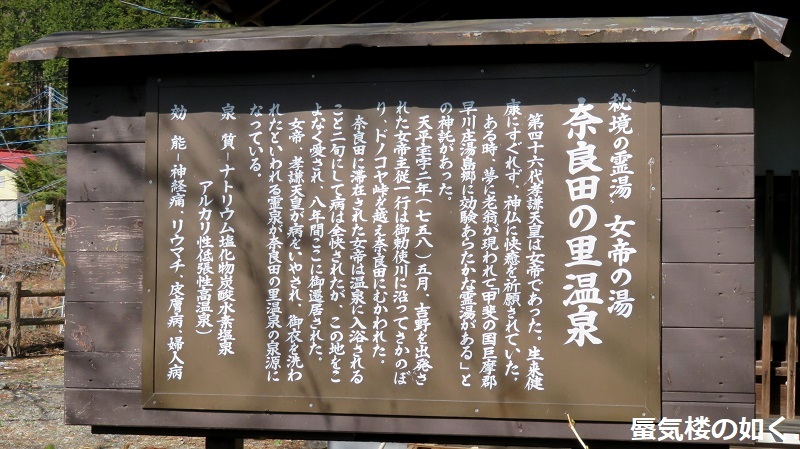 〝秘境の霊湯〟女帝の湯
奈良田の里温泉
第四十六代孝謙天皇は女帝であった。生来健
康にすぐれず、神仏に快癒を祈願されていた。
ある時、夢に老翁が現われて「甲斐の国巨摩郡
早川庄湯島郷に効験あらたかな霊湯がある」と
の神託があった。
天平宝字二年(七五八)五月、吉野を出発さ
れた女帝主従一行は御勅使川に沿ってさかのぼ
り、ドノコヤ峠を越え奈良田にむかわれた。
奈良田に滞在された女帝は温泉に入浴される
こと二旬にして病は全快されたが、この地をこ
よなく愛され、八年間ここに御遷居された。
女帝、孝謙天皇が病をいやされ、御衣を洗わ
れたといわれる霊泉が奈良田の里温泉の泉源に
なっている。
泉質-ナトリウム塩化物炭酸水素塩泉
アルカリ性低張性高温泉)
効能-神経痛、リウマチ、皮膚病、婦人病
蜃気楼の如く